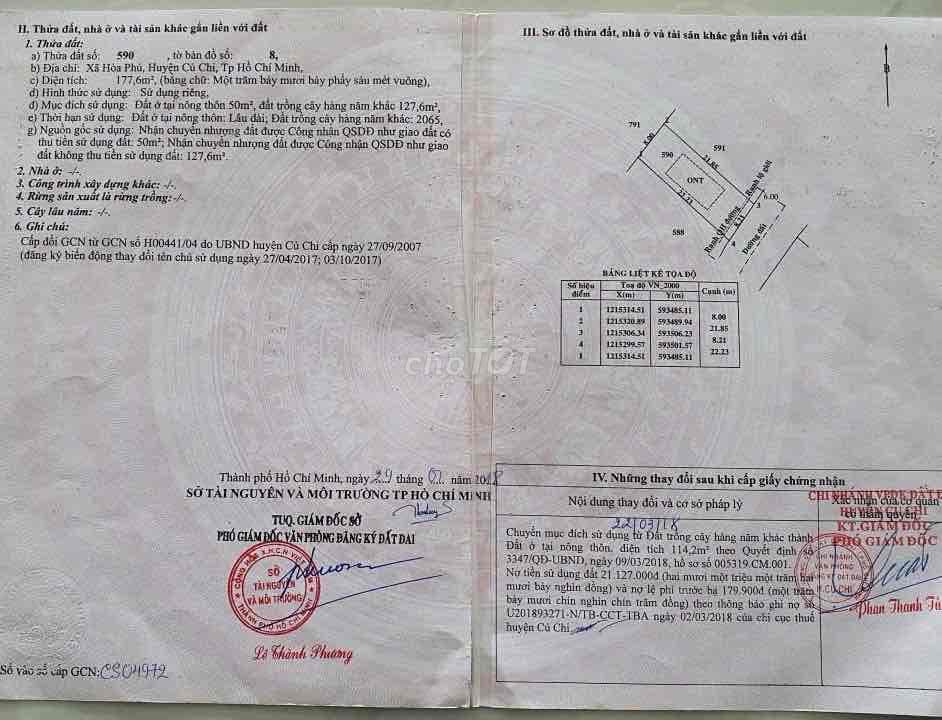 II. Thửa đất, nhà ở và tài sản khác gắn liền với đất
1. Thửa đất:
a) Thửa đất số: 590 , tờ bản đồ số: 8,
b) Địa chỉ: Xã Hòa Phú, Huyện Củ Chi, Tp Hồ Chí Minh,
c) Diện tích: 177,6m², (bằng chữ: Một trăm bảy mươi bảy phẩy sáu mét vuông),
d) Hình thức sử dụng: Sử dụng riêng,
đ) Mục đích sử dụng: Đất ở tại nông thôn 50m², đất trồng cây hàng năm khác 127,6m²,
e) Thời hạn sử dụng: Đất ở tại nông thôn: Lâu dài; Đất trồng cây hàng năm khác: 2065,
g) Nguồn gốc sử dụng: Nhận chuyển nhượng đất được Công nhận QSDĐ như giao đất có
thu tiền sử dụng đất: 50m²; Nhận chuyển nhượng đất được Công nhận QSDĐ như giao
đất không thu tiền sử dụng đất: 127,6m².
2. Nhà ở: -/-.
3. Công trình xây dựng khác: -/-.
4. Rừng sản xuất là rừng trồng: -/-.
5. Cây lâu năm: -/-.
6. Ghi chú:
Cấp đổi GCN từ GCN số H00441/04 do UBND huyện Củ Chi cấp ngày 27/09/2007
(đăng ký biến động thay đổi tên chủ sử dụng ngày 27/04/2017; 03/10/2017)
Thành phố Hồ Chí Minh, ngày 29 tháng 01 năm 2018
SỞ TÀI NGUYÊN VÀ MÔI TRƯỜNG TP HỒ CHÍ MINH
TUQ. GIÁM ĐỐC SỞ
PHÓ GIÁM ĐỐC VĂN PHÒNG ĐĂNG KÝ ĐẤT ĐAI
CỘNG HÒA X.H.C.N VIỆT NAM
SỞ
TÀI NGUYÊN
VÀ MÔI TRƯỜNG
THÀNH PHỐ HỒ CHÍ MINH
Lê Thành Phương
Số vào sổ cấp GCN: CS04972
III. Sơ đồ thửa đất, nhà ở và tài sản khác gắn liền với đất
B
791
8.00
591
590
21.85
ONT
22.23
Ranh lộ giới
6.00
3
8.21
Ranh QH đường
4
588
Đường đất
BẢNG LIỆT KÊ TỌA ĐỘ
Số hiệu điểm Toạ độ VN_2000 Cạnh (m)
X(m) Y(m)
1 1215314.51 593485.11
8.00
2 1215320.89 593489.94
21.85
3 1215306.34 593506.23
8.21
4 1215299.57 593501.57
22.23
1 1215314.51 593485.11
choTỐT
IV. Những thay đổi sau khi cấp giấy chứng nhận
Nội dung thay đổi và cơ sở pháp lý
Xác nhận của cơ quan
có thẩm quyền
CHI NHÁNH VPĐK ĐẤT Đ
HUYỆN CỦ CHI
KT.GIÁM ĐỐC
PHÓ GIÁM ĐỐC
22/03/18
Chuyển mục đích sử dụng từ Đất trồng cây hàng năm khác thành
Đất ở tại nông thôn, diện tích 114,2m² theo Quyết định số
3347/QĐ-UBND, ngày 09/03/2018, hồ sơ số 005319.CM.001.
Nợ tiền sử dụng đất 21.127.000đ (hai mươi một triệu một trăm hai
mươi bảy nghìn đồng) và nợ lệ phí trước bạ 179.900đ (một trăm
bảy mươi chín nghìn chín trăm đồng) theo thông báo ghi nợ số
U201893271-N/TB-CCT-TBA ngày 02/03/2018 của chi cục thuế
huyện Củ Chi
CHI NHÁNH
VĂN PHÒNG
ĐĂNG KÝ ĐẤT ĐAI
H.CỦ CHI
Phan Thanh Tù